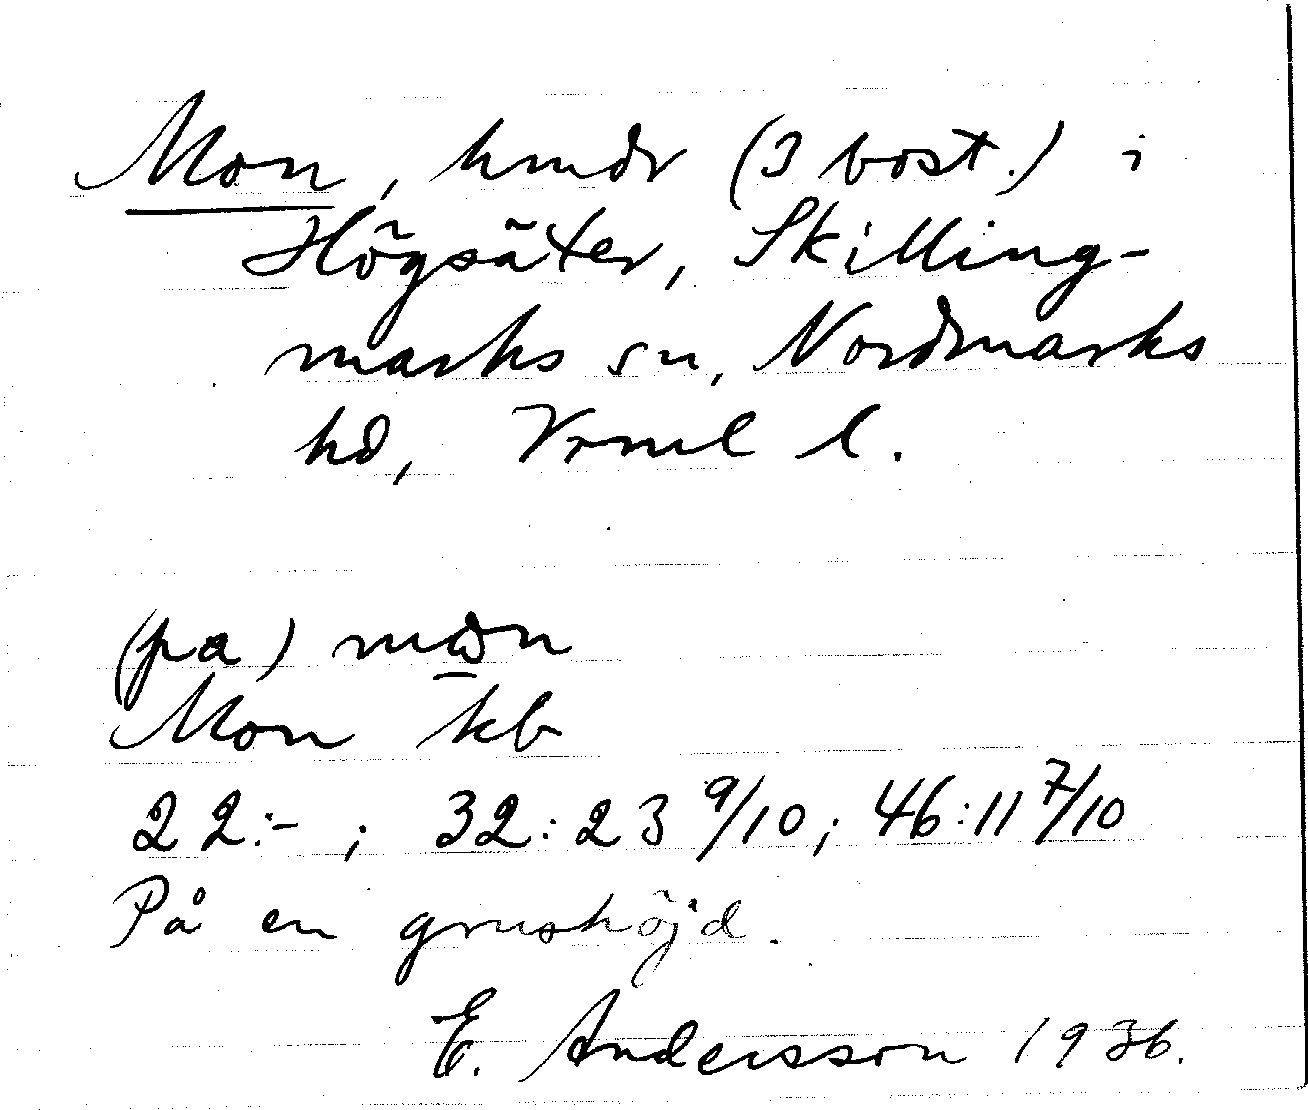 Mon, hmdr (3 bost.) i
Högsäter, Skilling-
marks sn, Nordmarks
hd, Vrml l.
(pa)
Mon kb
22:- ; 32:23 9/10; 46:11 7/10
På en grushöjd.
E. Andersson 1936.